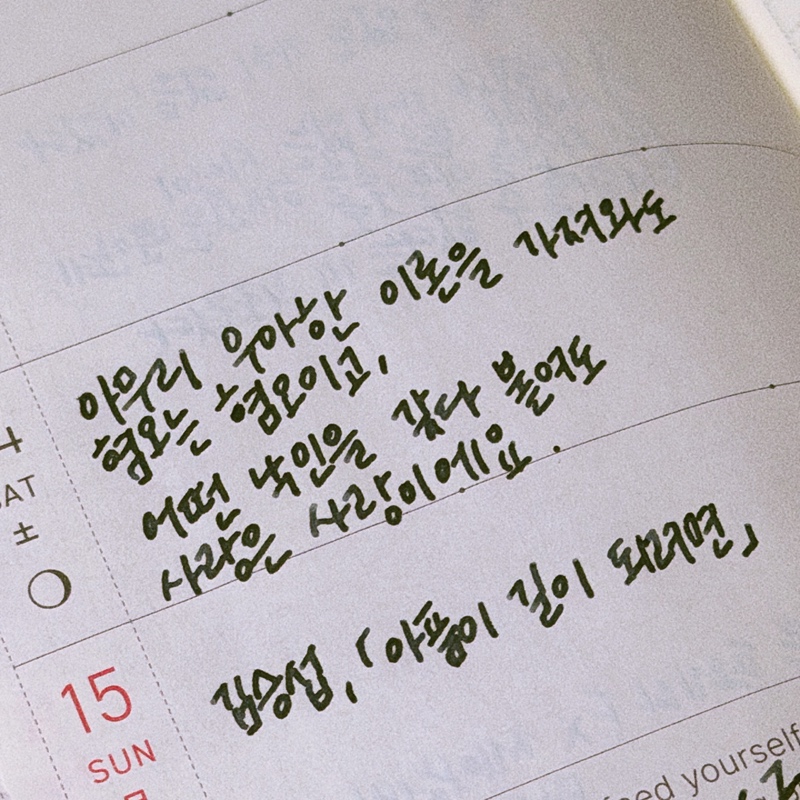 아무리 우아한 이론을 가져와도
혐오는 혐오이고,
어떤 낙인을 갖다 붙여도
사랑은 사랑이에요.
SAT
土
김승섭, 「아픔이 길이 되려면」
15
SUN
feed yourself